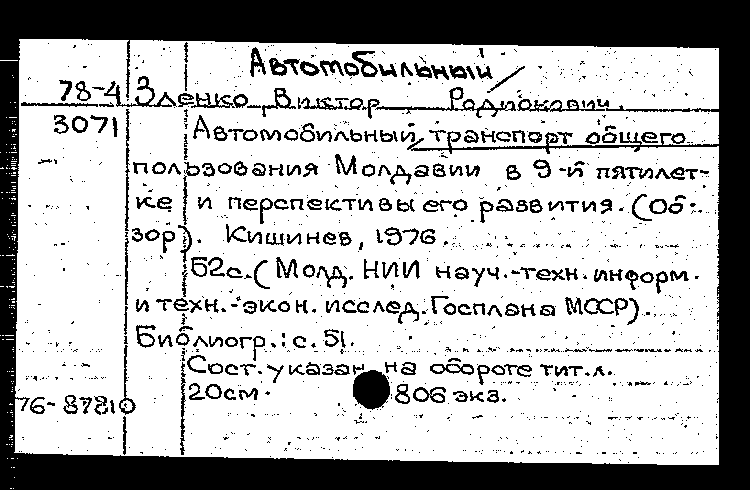 Автомобильный
78-4 Зленко, Виктор Родионович.
3071 Автомобильный транспорт общего
пользования Молдавии в 9-й пятилет-
ке и перспективы его развития. (Об-
зор). Кишинев, 1976.
52с. (Молд. НИИ науч.-техн. информ.
и техн.-экон. исслед. Госплана МССР).
Библиогр.: с. 51.
Сост. указан на обороте тит. л.
76-87810 20см. 806 экз.